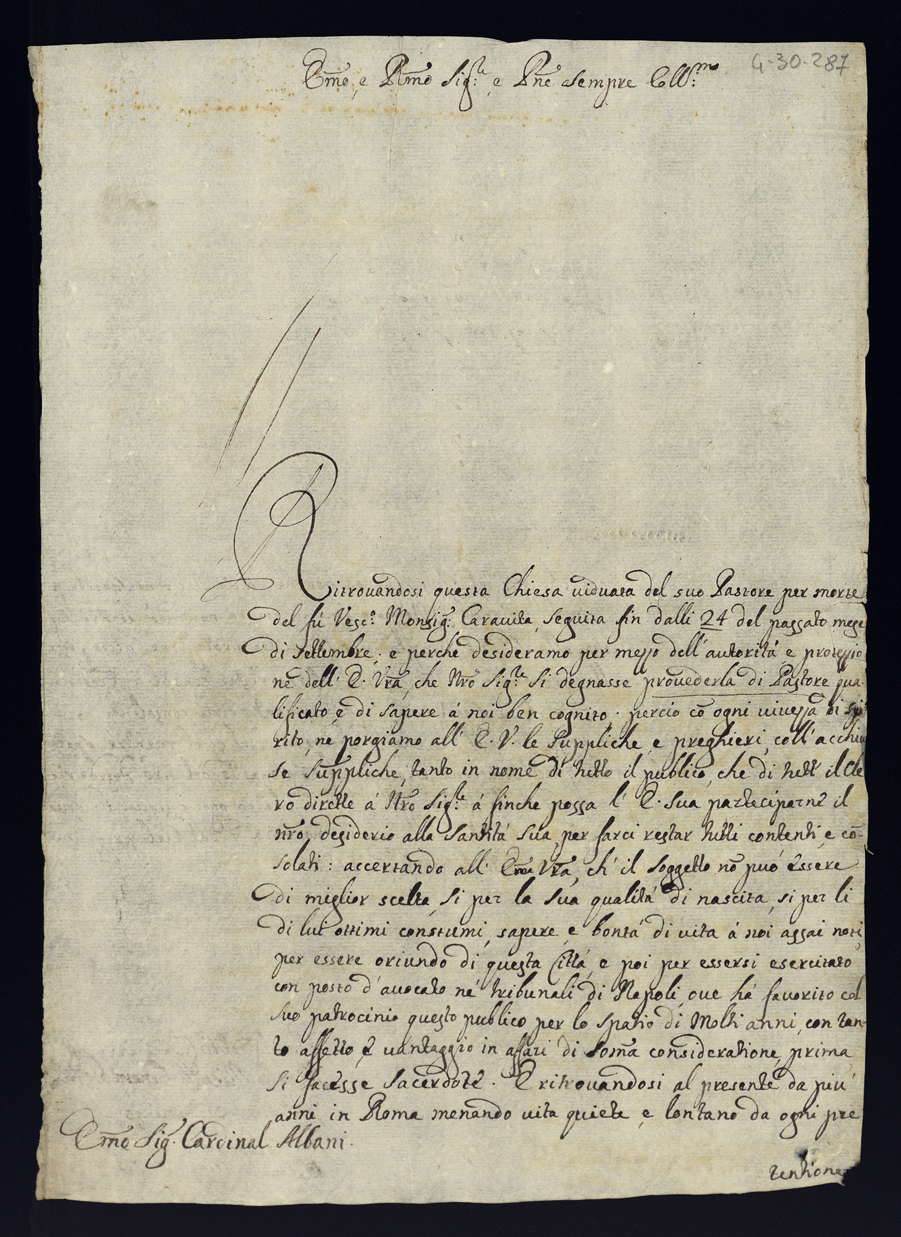 4-30-287
Em̃o, e R̃mo Sig:re, e Pñe sempre Coll:mo
Ritrouandosi questa Chiesa uiduata del suo Pastore per morte
del fù Vesc:o Monsig: Carauita, seguita fin dalli 24 del passato mese
di settembre; e perche desideramo per mezzo dell'autoritá e protezzio
ne dell' E. Vrã, che Nrõ Sig:re si degnasse prouederla di Pastore qua
lificato, e di sapere á noi ben cognito. perciò cõ ogni uiuezza di spi
rito, ne porgiamo all' E. V. le suppliche, e preghieri, coll'acchiu
se suppliche, tanto in nome di tutto il publico, che di tutt' il Cle
ro dirette á Nrõ Sig:re á finche possa l' E. Sua partecipare il
nrõ desiderio alla Santitá Sua, per farci restar tutti contenti, e cõ-
solati: accertando all' Em̃a Vrã, ch' il soggetto nõ può essere
di miglior scelta, si per la sua qualitá di nascita, si per li
di lui ottimi constumi, sapere, e bontá di uita á noi assai noti,
per essere oriundo di questa Cittá, e poi per essersi esercitato
con posto d'auocato ne' tribunali di Napoli, oue há fauorito col
suo patrocinio questo publico per lo spatio di Molti anni, con tan-
to affetto, e uantaggio in affari di som̃a consideratione, prima
si facesse sacerdote. E ritrouandosi al presente da più
anni in Roma menando uita quieta, e lontano da ogni pre
Em̃o Sig. Cardinal Albani.
tentione